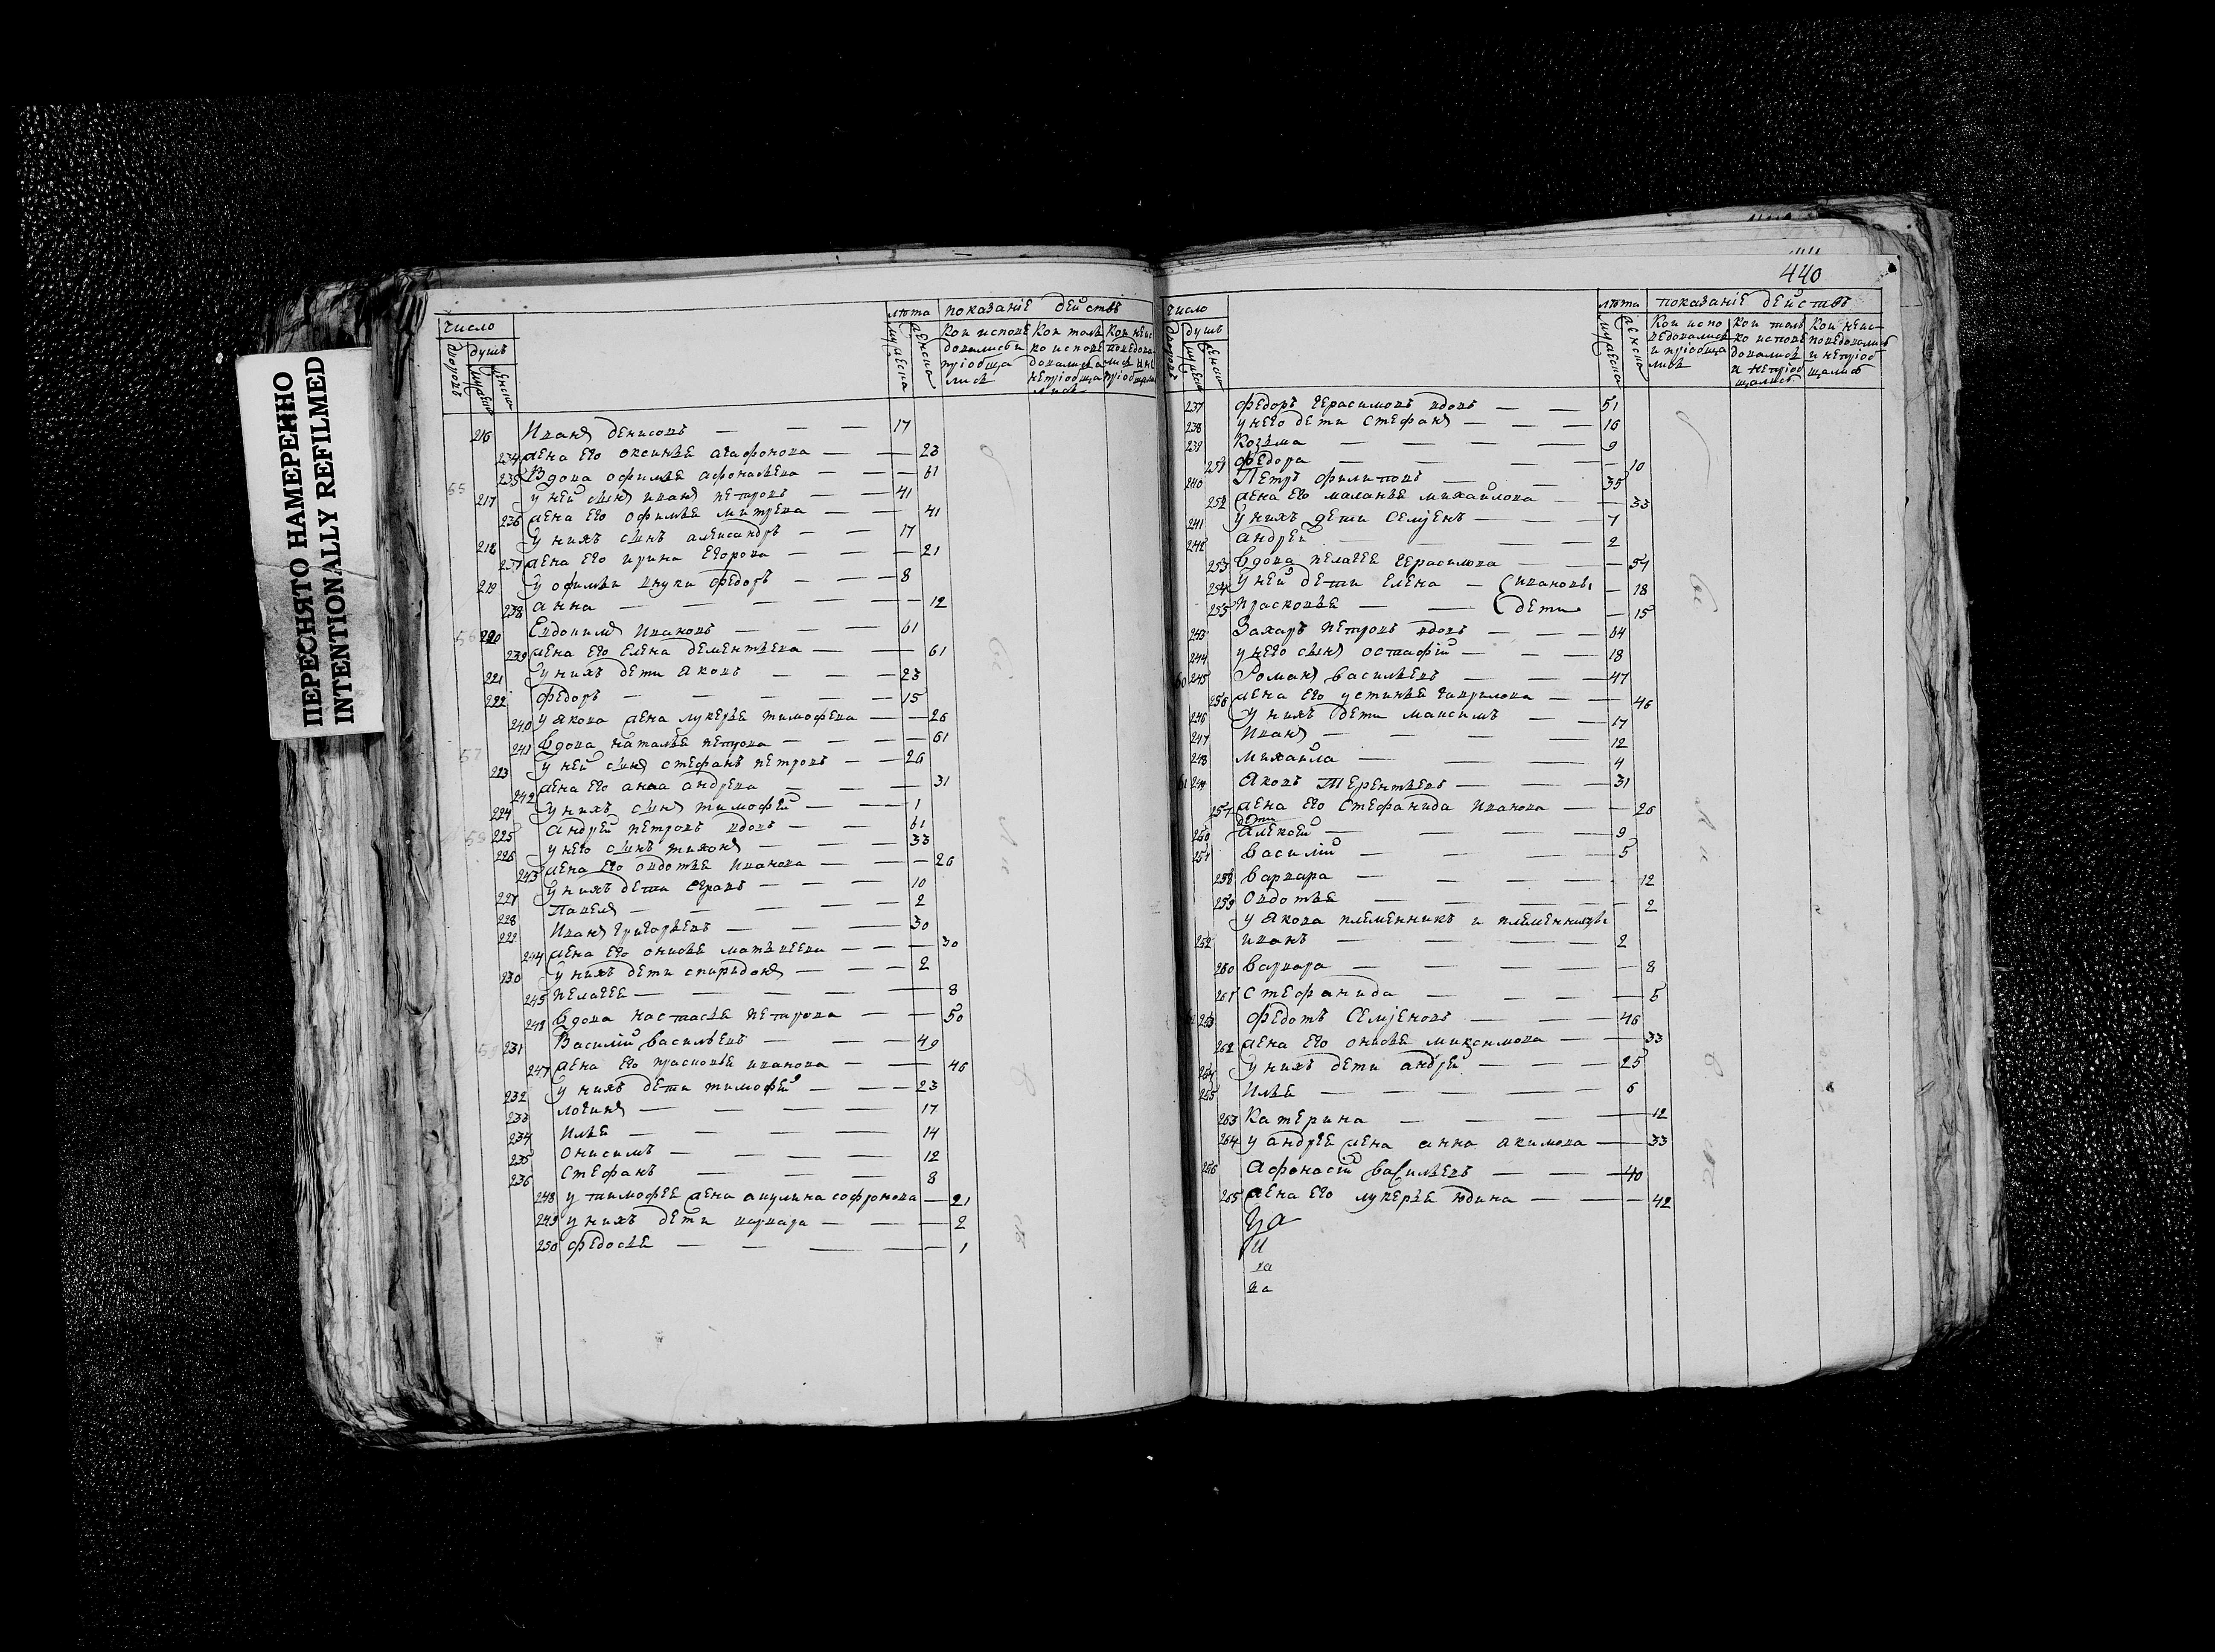 ПЕРЕСНЯТО НАМЕРЕННО
INTENTIONALLY REFILMED
число
лѣта показаніе действъ
дворовъ душъ
мужеска женска
Кои испове
довались и
пріобща
лись
Кои толь
ко испове
довались а
не пріобща
лись
216 Иванъ денисовъ — — — 17
234 жена его оксинья агафонова — — 23
235 Вдова офимья афонасьева — — 61
55 217 у ней сынъ иванъ петровъ — — 41
236 жена его офимья митрева — — 41
218 у нихъ сынъ александръ — — 17
237 жена его ирина егорова — — — 21
219 у офимьи внуки федоръ — — — 8
238 анна — — — — — 12
56 220 Евдокимъ Ивановъ — — — 61
239 жена его елена дементьева — — 61
221 у нихъ дети яковъ — — — 23
222 федоръ — — — — 15
240 у якова жена лукерья тимофева — — 26
57 241 вдова наталья петрова — — — — 61
223 у ней сынъ стефанъ петровъ — — 26
242 жена его анна андрева — — — 31
224 у нихъ сынъ тимофей — — — 1
58 225 андрей петровъ вдовъ — — — 61
226 у него сынъ тихонъ — — — 33
243 жена его овдотья иванова — — — 26
227 у нихъ дети — — — 10
228 Павелъ — — — — — 2
229 Иванъ григорьевъ — — — 30
244 жена его онисья матвеева — — — 30
230 у нихъ дети спиридонъ — — — 2
245 пелагея — — — — — 8
246 вдова настасья петрова — — 50
59 231 Василий васильевъ — — — 49
247 жена его прасковья иванова — — 46
232 у нихъ дети тимофей — — — 23
233 логинъ — — — — 17
234 илья — — — — 14
235 онисимъ — — — — 12
236 стефанъ — — — 8
248 у тимофея жена акулина софронова — 21
249 у нихъ дети варвара — — — 2
250 федосья — — — — — 1
440
число
лѣта показаніе действъ
дворовъ душъ
мужеска женска
Кои испо
ведовались
и пріобща
лись
Кои толь
ко испове
довались
и не пріоб
щались
Кои не ис
поведовались
и не пріоб
щались
237 федоръ герасимовъ вдовъ — — 51
238 у него дети стефанъ — — — 16
239 Козьма — — — — — 9
251 федора — — — — — 10
240 Петръ филиповъ — — — 35
252 жена его маланья михайлова — — 33
241 у нихъ дети семіенъ — — — 7
242 андрей — — — — 2
253 вдова пелагея герасимова — — — 54
254 у ней дети елена — ивановы — 18
255 прасковья — — дети — 15
243 Захаръ петровъ вдовъ — — — 64
244 у него сынъ остафій — — — 18
60 245 Романъ васильевъ — — — 47
256 жена его устинья гаврилова — — 46
246 у нихъ дети максимъ — — 17
247 Иванъ — — — — 12
248 михаила — — — — 4
61 249 Яковъ терентьевъ — — — 31
257 жена его стефанида иванова — — 26
дети
250 алексей — — — — — 9
251 василій — — — — — 5
258 варвара — — — — — 12
259 овдотья — — — — — 2
у якова племенникъ и племенницы
252 иванъ — — — — 2
260 варвара — — — — — 8
261 стефанида — — — — 5
253 федотъ семіеновъ — — — 46
262 жена его онисья максимова — — 33
254 у нихъ дети андрей — — — 25
255 илья — — — — 6
263 катерина — — — — 12
264 у андрея жена анна акимова — 33
256 афонасій васильевъ — — 40
265 жена его лукерья юдина — — — 42